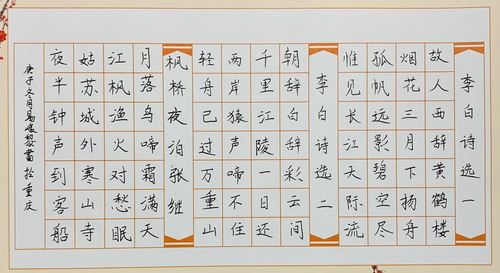 李白诗选一
故人西辞黄鹤楼
烟花三月下扬舟
孤帆远影碧空尽
惟见长江天际流
李白诗选二
朝辞白辞彩云间
千里江陵一日还
两岸猿声啼不住
轻舟已过万重山
枫桥夜泊张继
月落乌啼霜满天
江枫渔火对愁眠
姑苏城外寒山寺
夜半钟声到客船
庚子冬月易黎书於重庆